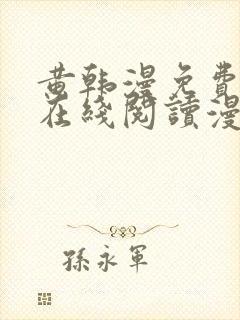 黄韩漫免费
在线阅读漫
孫永軍